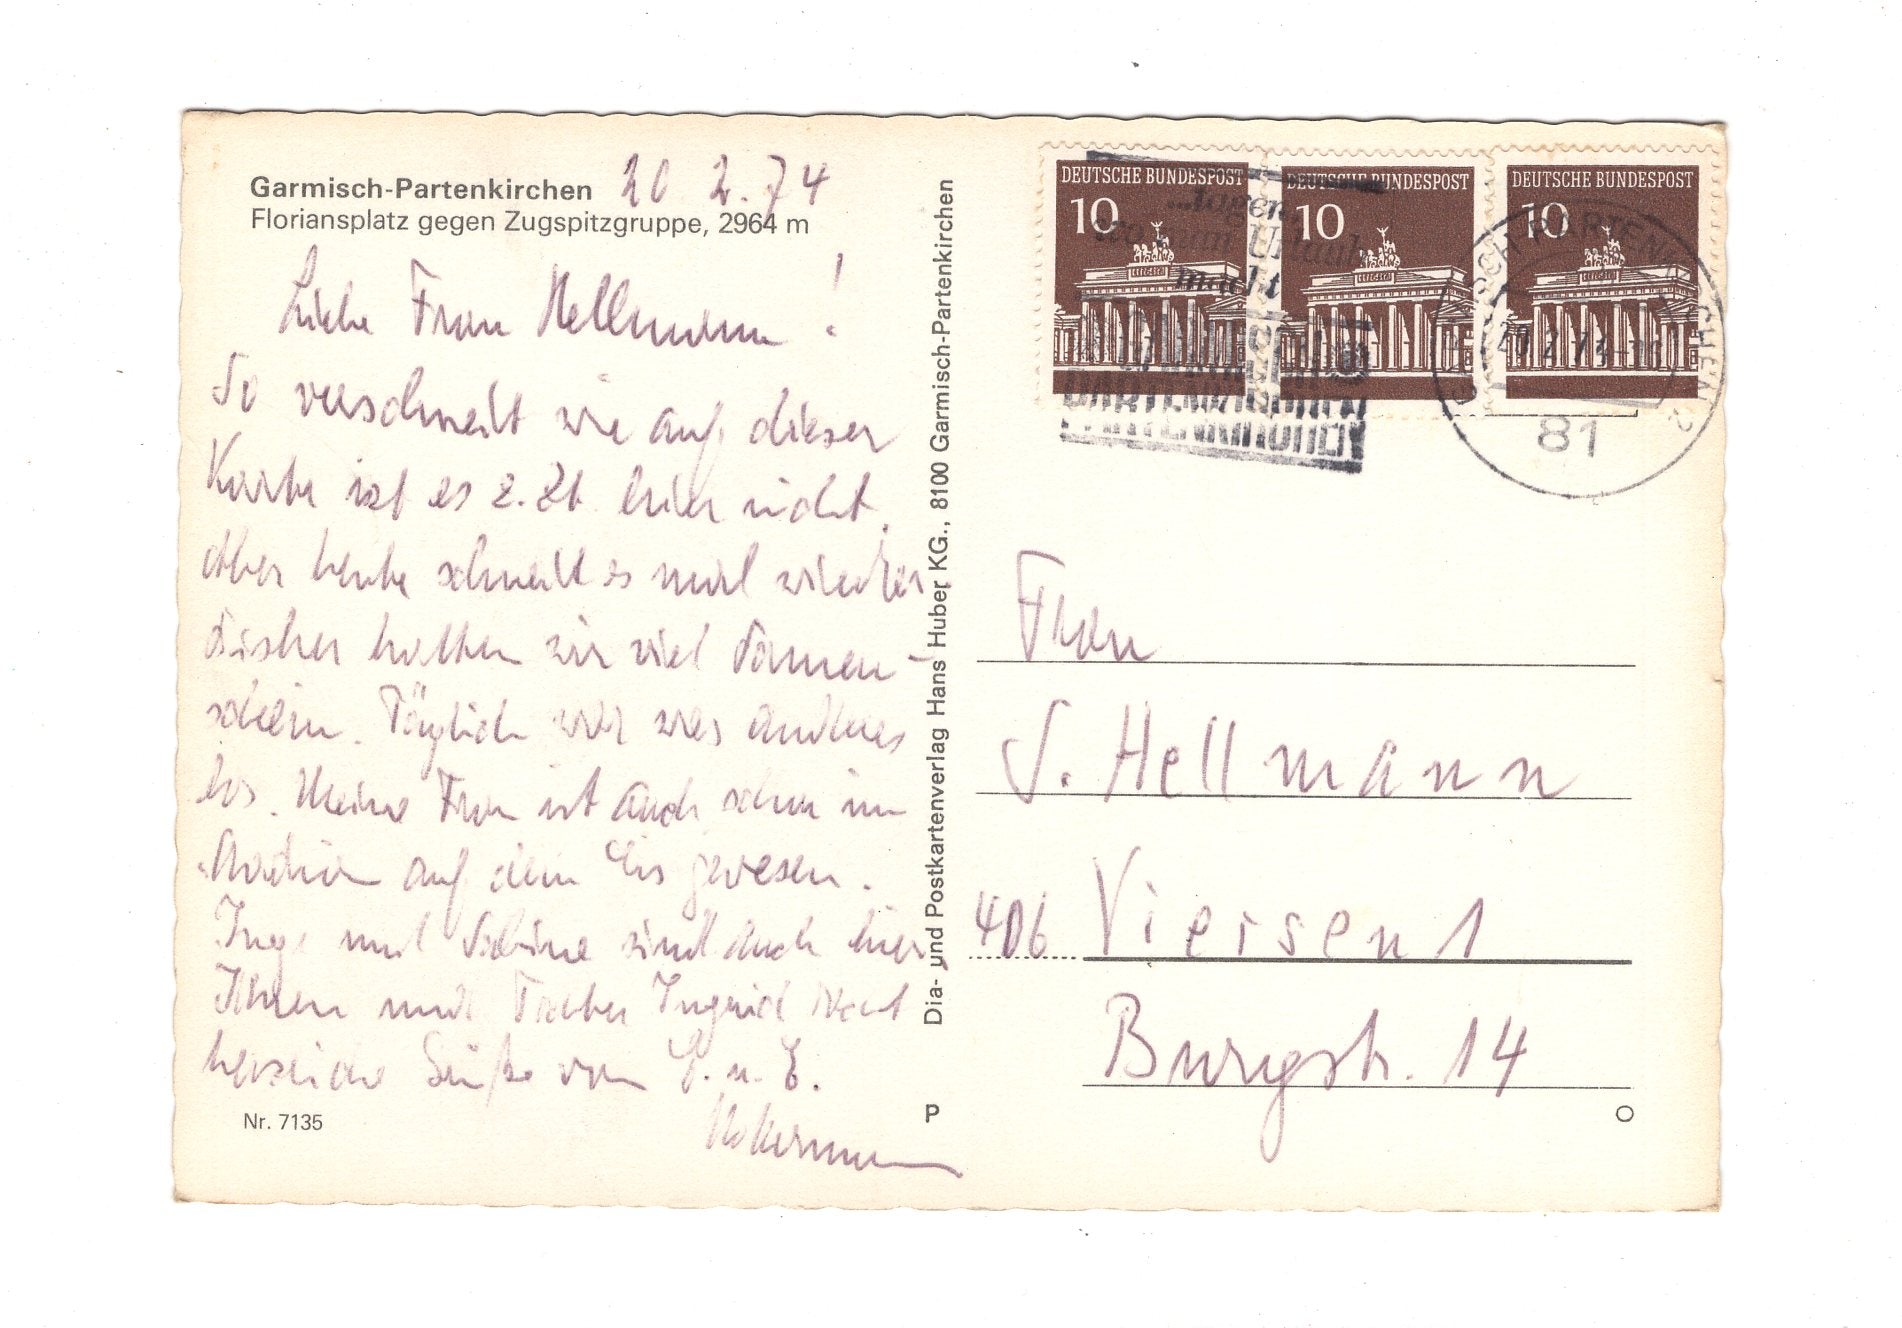 Garmisch-Partenkirchen 20 2.74
Floriansplatz gegen Zugspitzgruppe, 2964 m
Liebe Frau Hellmann!
So verschneit wie auf dieser
Karte ist es z.Zt. hier nicht,
aber heute schneit es mal wieder
Bisher hatten wir viel Sonnen-
schein. Täglich was anderes
los. Meine Frau ist auch schon im
Stadion auf dem Eis gewesen.
Inge und Sabine sind auch hier,
Ihnen und Ingrid
herzliche Grüße von u.
Nr. 7135
Dia- und Postkartenverlag Hans Huber KG., 8100 Garmisch-Partenkirchen
P
DEUTSCHE BUNDESPOST
10
DEUTSCHE BUNDESPOST
10
DEUTSCHE BUNDESPOST
10
...tagen,
wo man Urlaub
macht
GARMISCH
PARTENKIRCHEN
GARMISCH-PARTENKIRCHEN 2
20.2.74
81
Frau
S. Hellmann
406 Viersen 1
Burgstr. 14